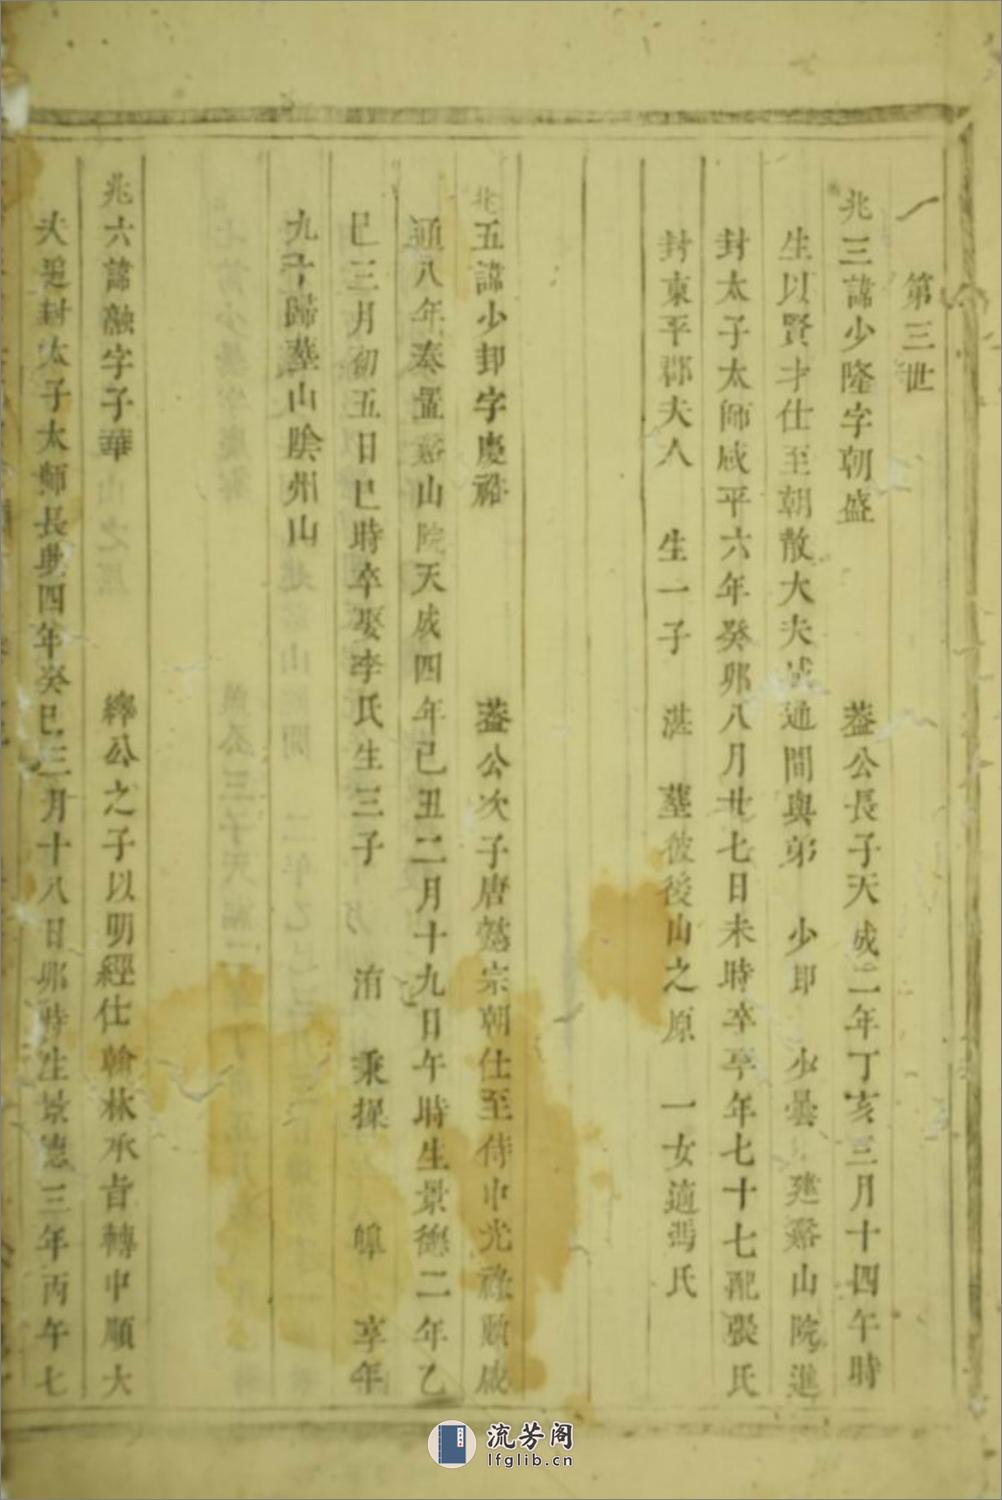 第三世
兆三諱少隆字朝盛 葢公長子天成二年丁亥三月十四午時
生以賢才仕至朝散大夫咸通間與弟 少卽 少曇 建嘉山院進
封太子太師咸平六年癸卯八月廿七日未時卒享年七十七配張氏
封東平郡夫人 生一子 湛 塟彼後山之原 一女適馮氏
兆五諱少卽字慶裕 葢公次子唐懿宗朝仕至侍中光祿勲咸
通八年奏置嘉山院天成四年己丑二月十九日午時生景德二年乙
巳三月初五日巳時卒娶李氏生三子 洧 秉操 皡 享年
九十歸塟山陰州山
兆六諱融字子華 繹公之子以明經仕翰林承旨轉中順大
夫進封太子太師長興四年癸巳三月十八日卯時生景德三年丙午七
流芳阁
lfglib.cn